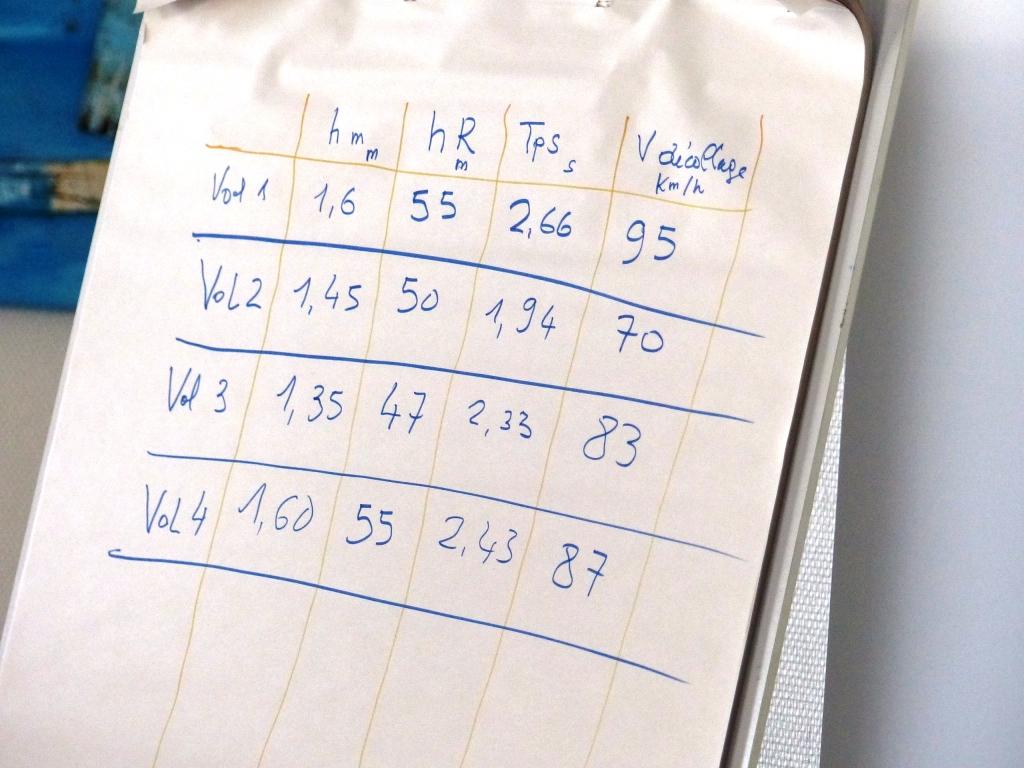 h m m hR m Tps s V décollage km/h
Vol 1 1,6 55 2,66 95
Vol 2 1,45 50 1,94 70
Vol 3 1,35 47 2,33 83
Vol 4 1,60 55 2,43 87